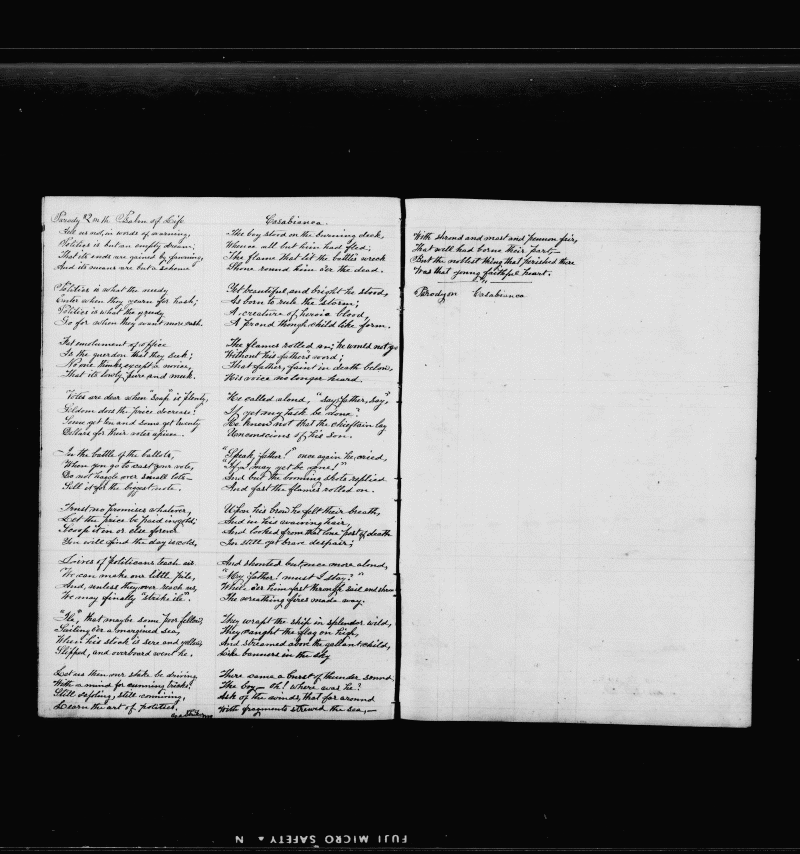 Parody #2 on the Psalm of Life
Tell us not, in words of warning,
Politics is but an empty dream;
That its ends are gained by fawning,
And its means are but a scheme
Politics is what the needy
Enter when they yearn for hash;
Politics is what the greedy
Go for when they want more cash.
Fat emolument of office
Is the guerdon that they seek;
No one thinks, except a novice,
That its lowly, pure and meek.
Votes are dear when "soap" is plenty,
Seldom does the price decrease;
Some get ten and some get twenty
Dollars for their votes apiece.
In the battle of the ballots,
When you go to cast your vote,
Do not haggle over small lots—
Sell it for the biggest note.
Trust no promises whatever,
Let the price be paid in gold;
Scoop it in or else
You will find the day is cold,
Lives of politicans teach us
We can make our little pile,
And, unless they over reach us,
We may finally "strike ile".
"Ile", that maybe some poor fellow,
Sailing o'er a margined sea,
When his stock is sere and yellow,
Slipped, and overboard went he.
Let us then, our stake be driving
With a mind for cunning tricks!
Still conniving,
Learn the art of politics.
Casabianca.
The boy stood on the burning deck,
Whence all but him had fled;
The flame that lit the battles wreck
Shone round him o'er the dead.
Yet beautiful and bright he stood,
As born to rule the storm;
A creature of heroic blood,
A proud though child like form.
The flames rolled on; he would not go
Without his father's word;
That father, faint in death below,
His voice no longer heard.
He called aloud, "say, father, say,
If yet my task be done?
He knew not that the chieftain lay
Unconscious of his son.
"Speak, father!" once again he cried,
"If I may yet be gone!"
And but the booming shots replied
And fast the flames rolled on.
Upon his brow he felt their breath,
And in his waving hair,
And looked from that lone post of death
In still yet brave despair;
And shouted but once more aloud,
"My father! must I stay?"
While o'er him fast through sail and shroud
The wreathing fires made way.
They wrapt the ship in splendor wild,
They caught the flag on high,
And streamed above the gallant child,
Like banners in the sky
There came a burst of thunder sound,
The boy— oh! where was he?
Ask of the winds, that far around
With fragments strewed the sea,—
With shroud and mast and pennon fair,
That well had borne their part—
But the noblest thing that perished there
Was that young faithful heart.
Parody on Casabianca
FUJI MICRO SAFETY ▲ N